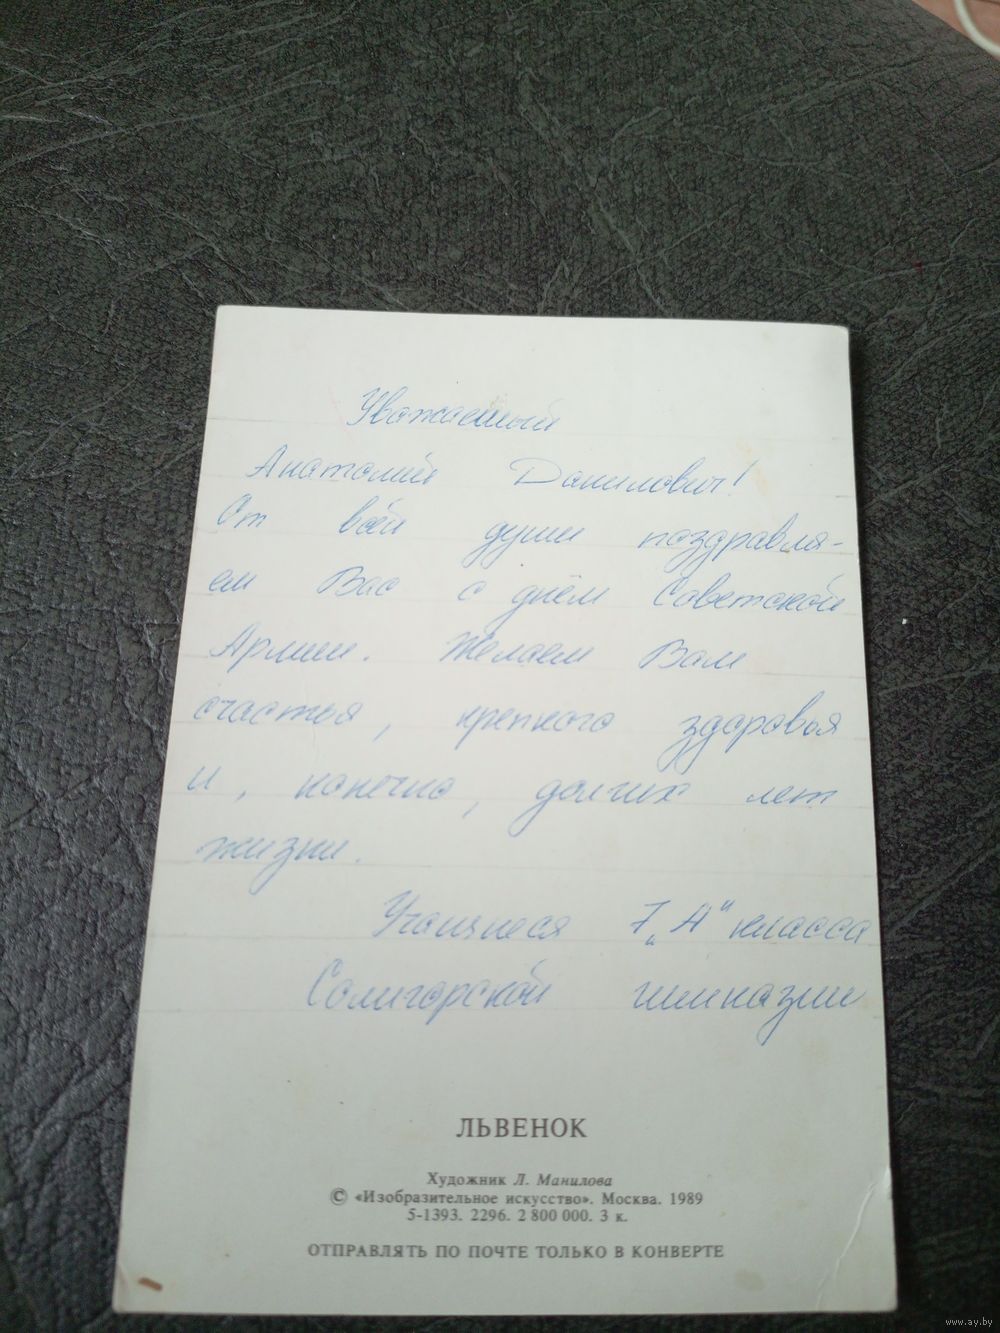 Уважаемый
Анатолий Данилович!
От всей души поздравля-
ем Вас с днём Советской
Армии. Желаем Вам
счастья, крепкого здоровья
и, конечно, долгих лет
жизни.
Учащиеся 7 „А" класса
Солигорской гимназии
ЛЬВЕНОК
Художник Л. Манилова
© «Изобразительное искусство». Москва. 1989
5-1393. 2296. 2 800 000. 3 к.
ОТПРАВЛЯТЬ ПО ПОЧТЕ ТОЛЬКО В КОНВЕРТЕ
www.ay.by